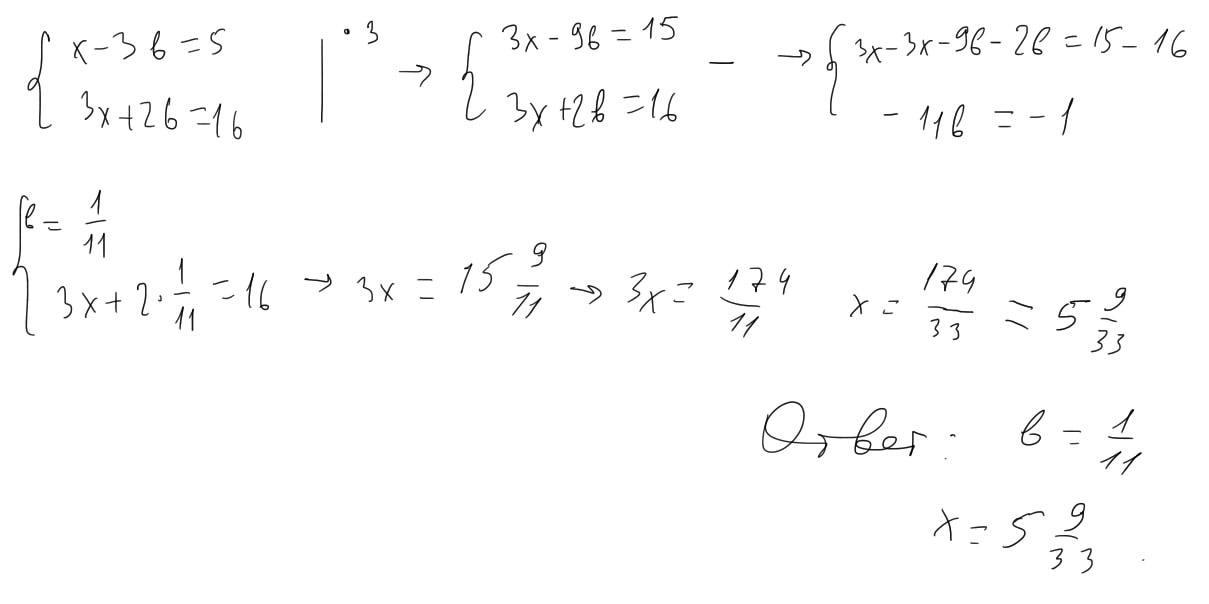 { x - 3b = 5 | · 3 → { 3x - 9b = 15 - → { 3x - 3x - 9b - 2b = 15 - 16
3x + 2b = 16 3x + 2b = 16 - 11b = - 1
{ b = 1/11
3x + 2 · 1/11 = 16 → 3x = 15 9/11 → 3x = 174/11 x = 174/33 = 5 9/33
Ответ: b = 1/11
x = 5 9/33 .